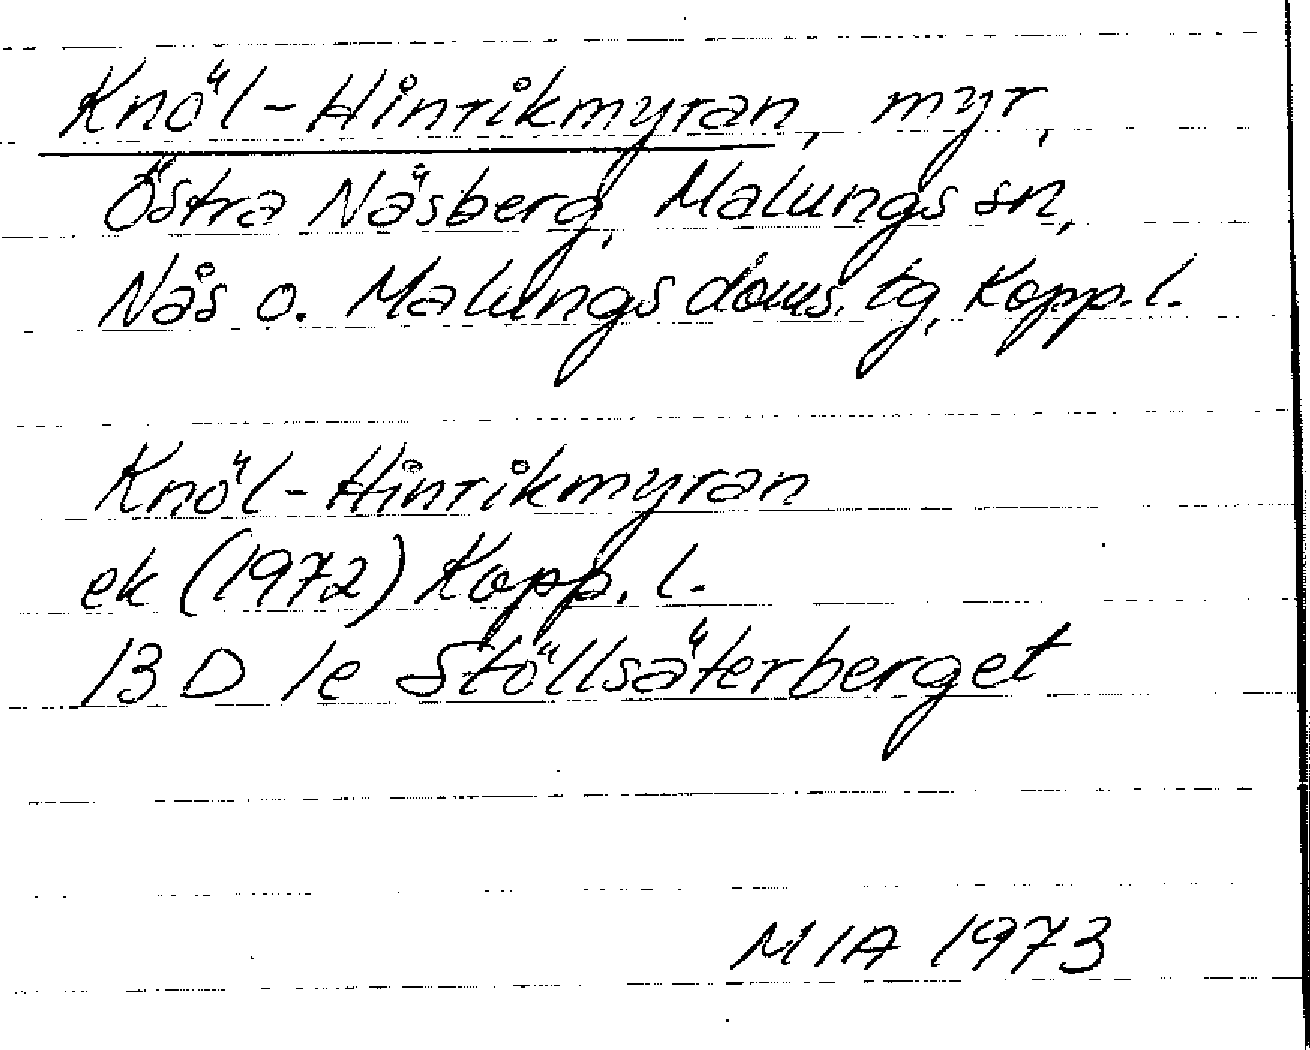 Knöl-Hinrikmyran, myr,
Östra Näsberg, Malungs sn,
Nås o. Malungs doms. tg, Kopp.l.
Knöl-Hinrikmyran
ek (1972) Kopp. l.
13 D 1e Stöllsäterberget
MIA 1973